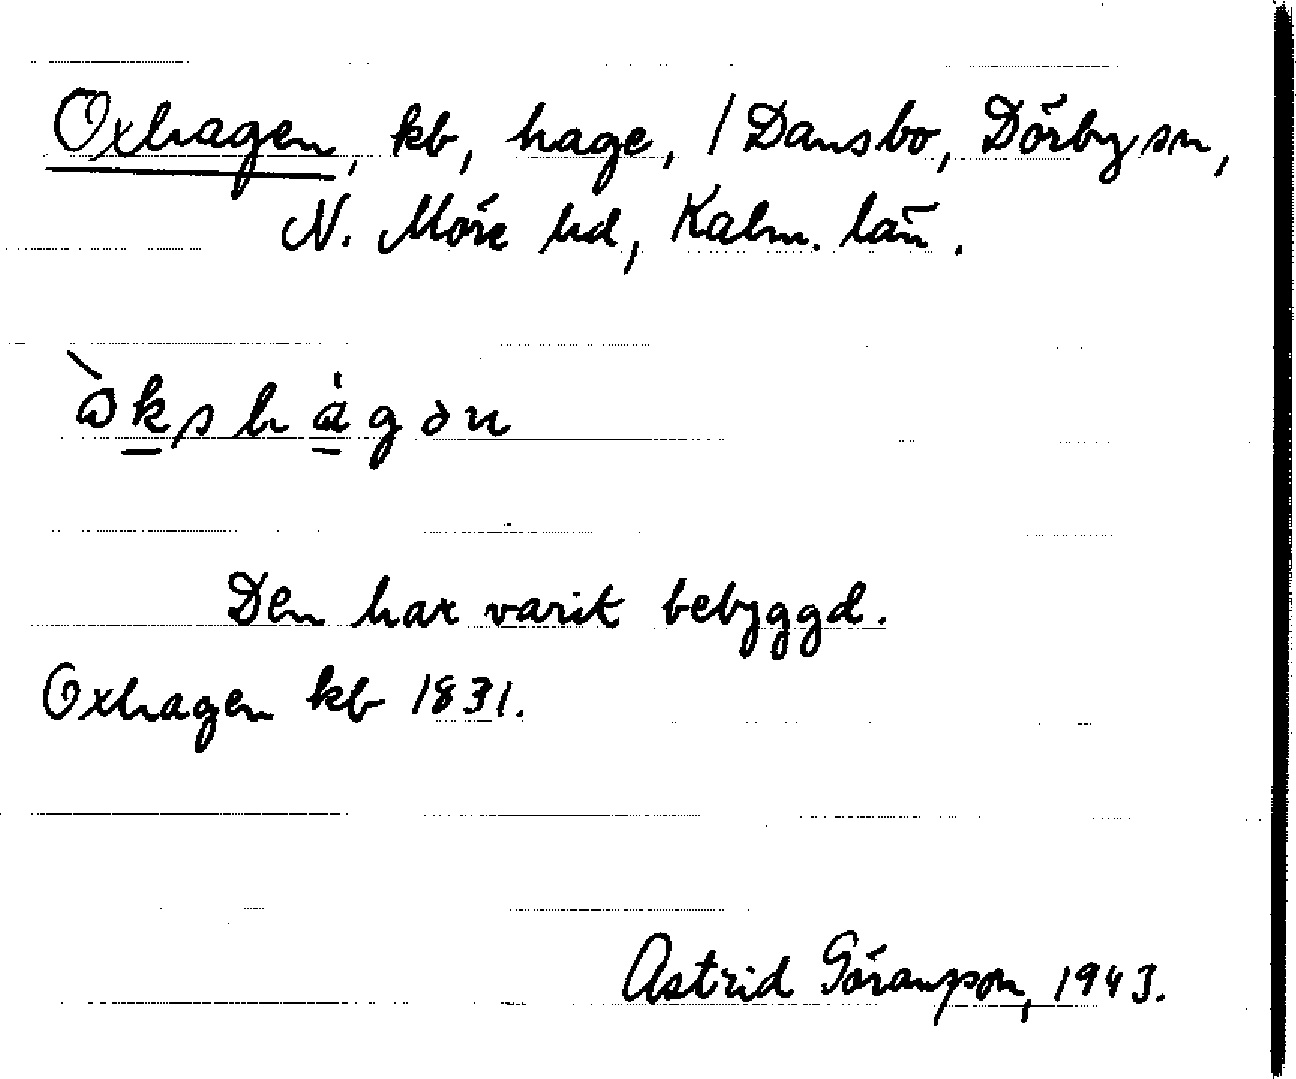 Oxhagen, kb, hage, / Dansbo, Dörby sn,
N. Möre hd, Kalm. län.
Den har varit bebyggd.
Oxhagen kb 1831.
Astrid Göranzson, 1943.